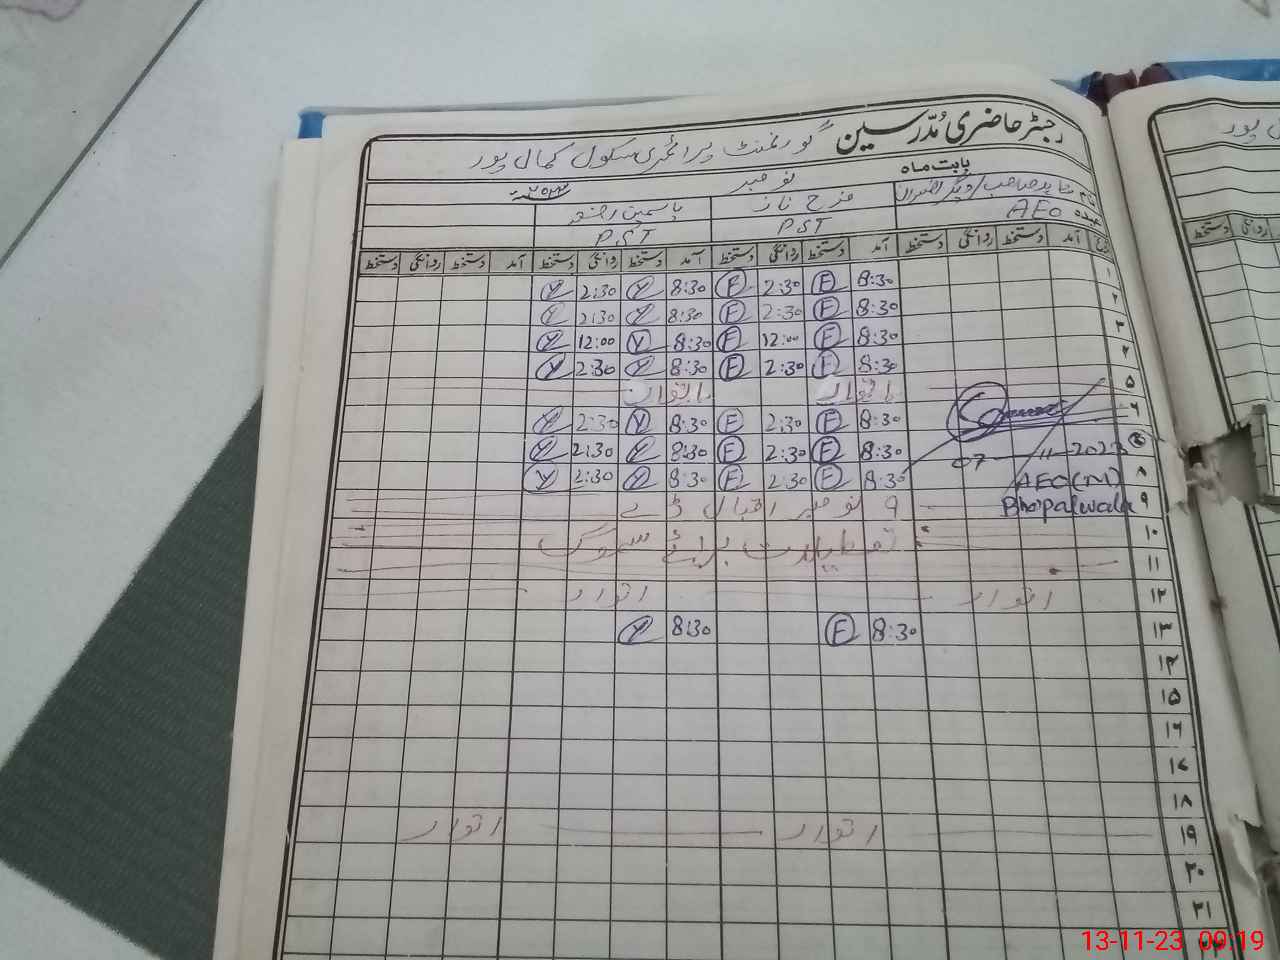 رجسٹر حاضری مدّرسین گورنمنٹ پرائمری سکول کمال پور
بابت ماہ نومبر ۲۰۲۳ء
فرح ناز یاسمین
عہدہ AEO PST PST
آمد دستخط روانگی دستخط آمد دستخط روانگی دستخط آمد دستخط روانگی دستخط آمد دستخط روانگی دستخط
۱ 8:30 F 2:30 F 8:30 Y 2:30 Y
۲ 8:30 F 2:30 F 8:30 Y 2:30 Y
۳ 8:30 F 12:00 F 8:30 Y 12:00 Y
۴ 8:30 F 2:30 F 8:30 Y 2:30 Y
۵ اتوار اتوار
۶ 8:30 F 2:30 F 8:30 Y 2:30 Y
07-11-2023 8:30 F 2:30 F 8:30 Y 2:30 Y
۸ AEO(M) 8:30 F 2:30 F 8:30 Y 2:30 Y
۹ Bhopalwala ۹ نومبر اقبال ڈے
۱۰ تعطیلات برائے سموگ
۱۱
۱۲ اتوار اتوار
۱۳ 8:30 F 8:30 Y
۱۴
۱۵
۱۶
۱۷
۱۸
۱۹ اتوار اتوار
۲۰
۲۱
13-11-23 09:19